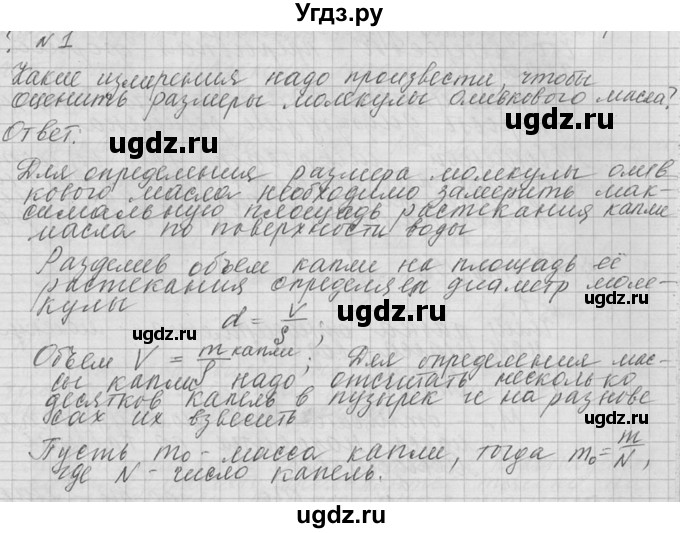 Угдз.ру
№1
Какие измерения надо произвести, чтобы
оценить размеры молекулы оливкового масла?
ugdz.ru
Ответ.
ugdz.ru ugdz.ru
Для определения размера молекулы олив
кового масла необходимо замерить мак-
симальную площадь растекания капли
масла по поверхности воды
ugdz.ru ugdz.ru
Разделив объем капли на площадь её
растекания определяем диаметр моле-
кулы
d = V/S;
ugdz.ru ugdz.ru
Объем V = m капли/ρ; Для определения мас-
сы капли надо отсчитать несколько
десятков капель в пузырек и на разнове
сах их взвесить
ugdz.ru ugdz.ru
Пусть m₀ - масса капли, тогда m₀ = m/N,
где N - число капель.
ugdz.ru
ugdz.ru